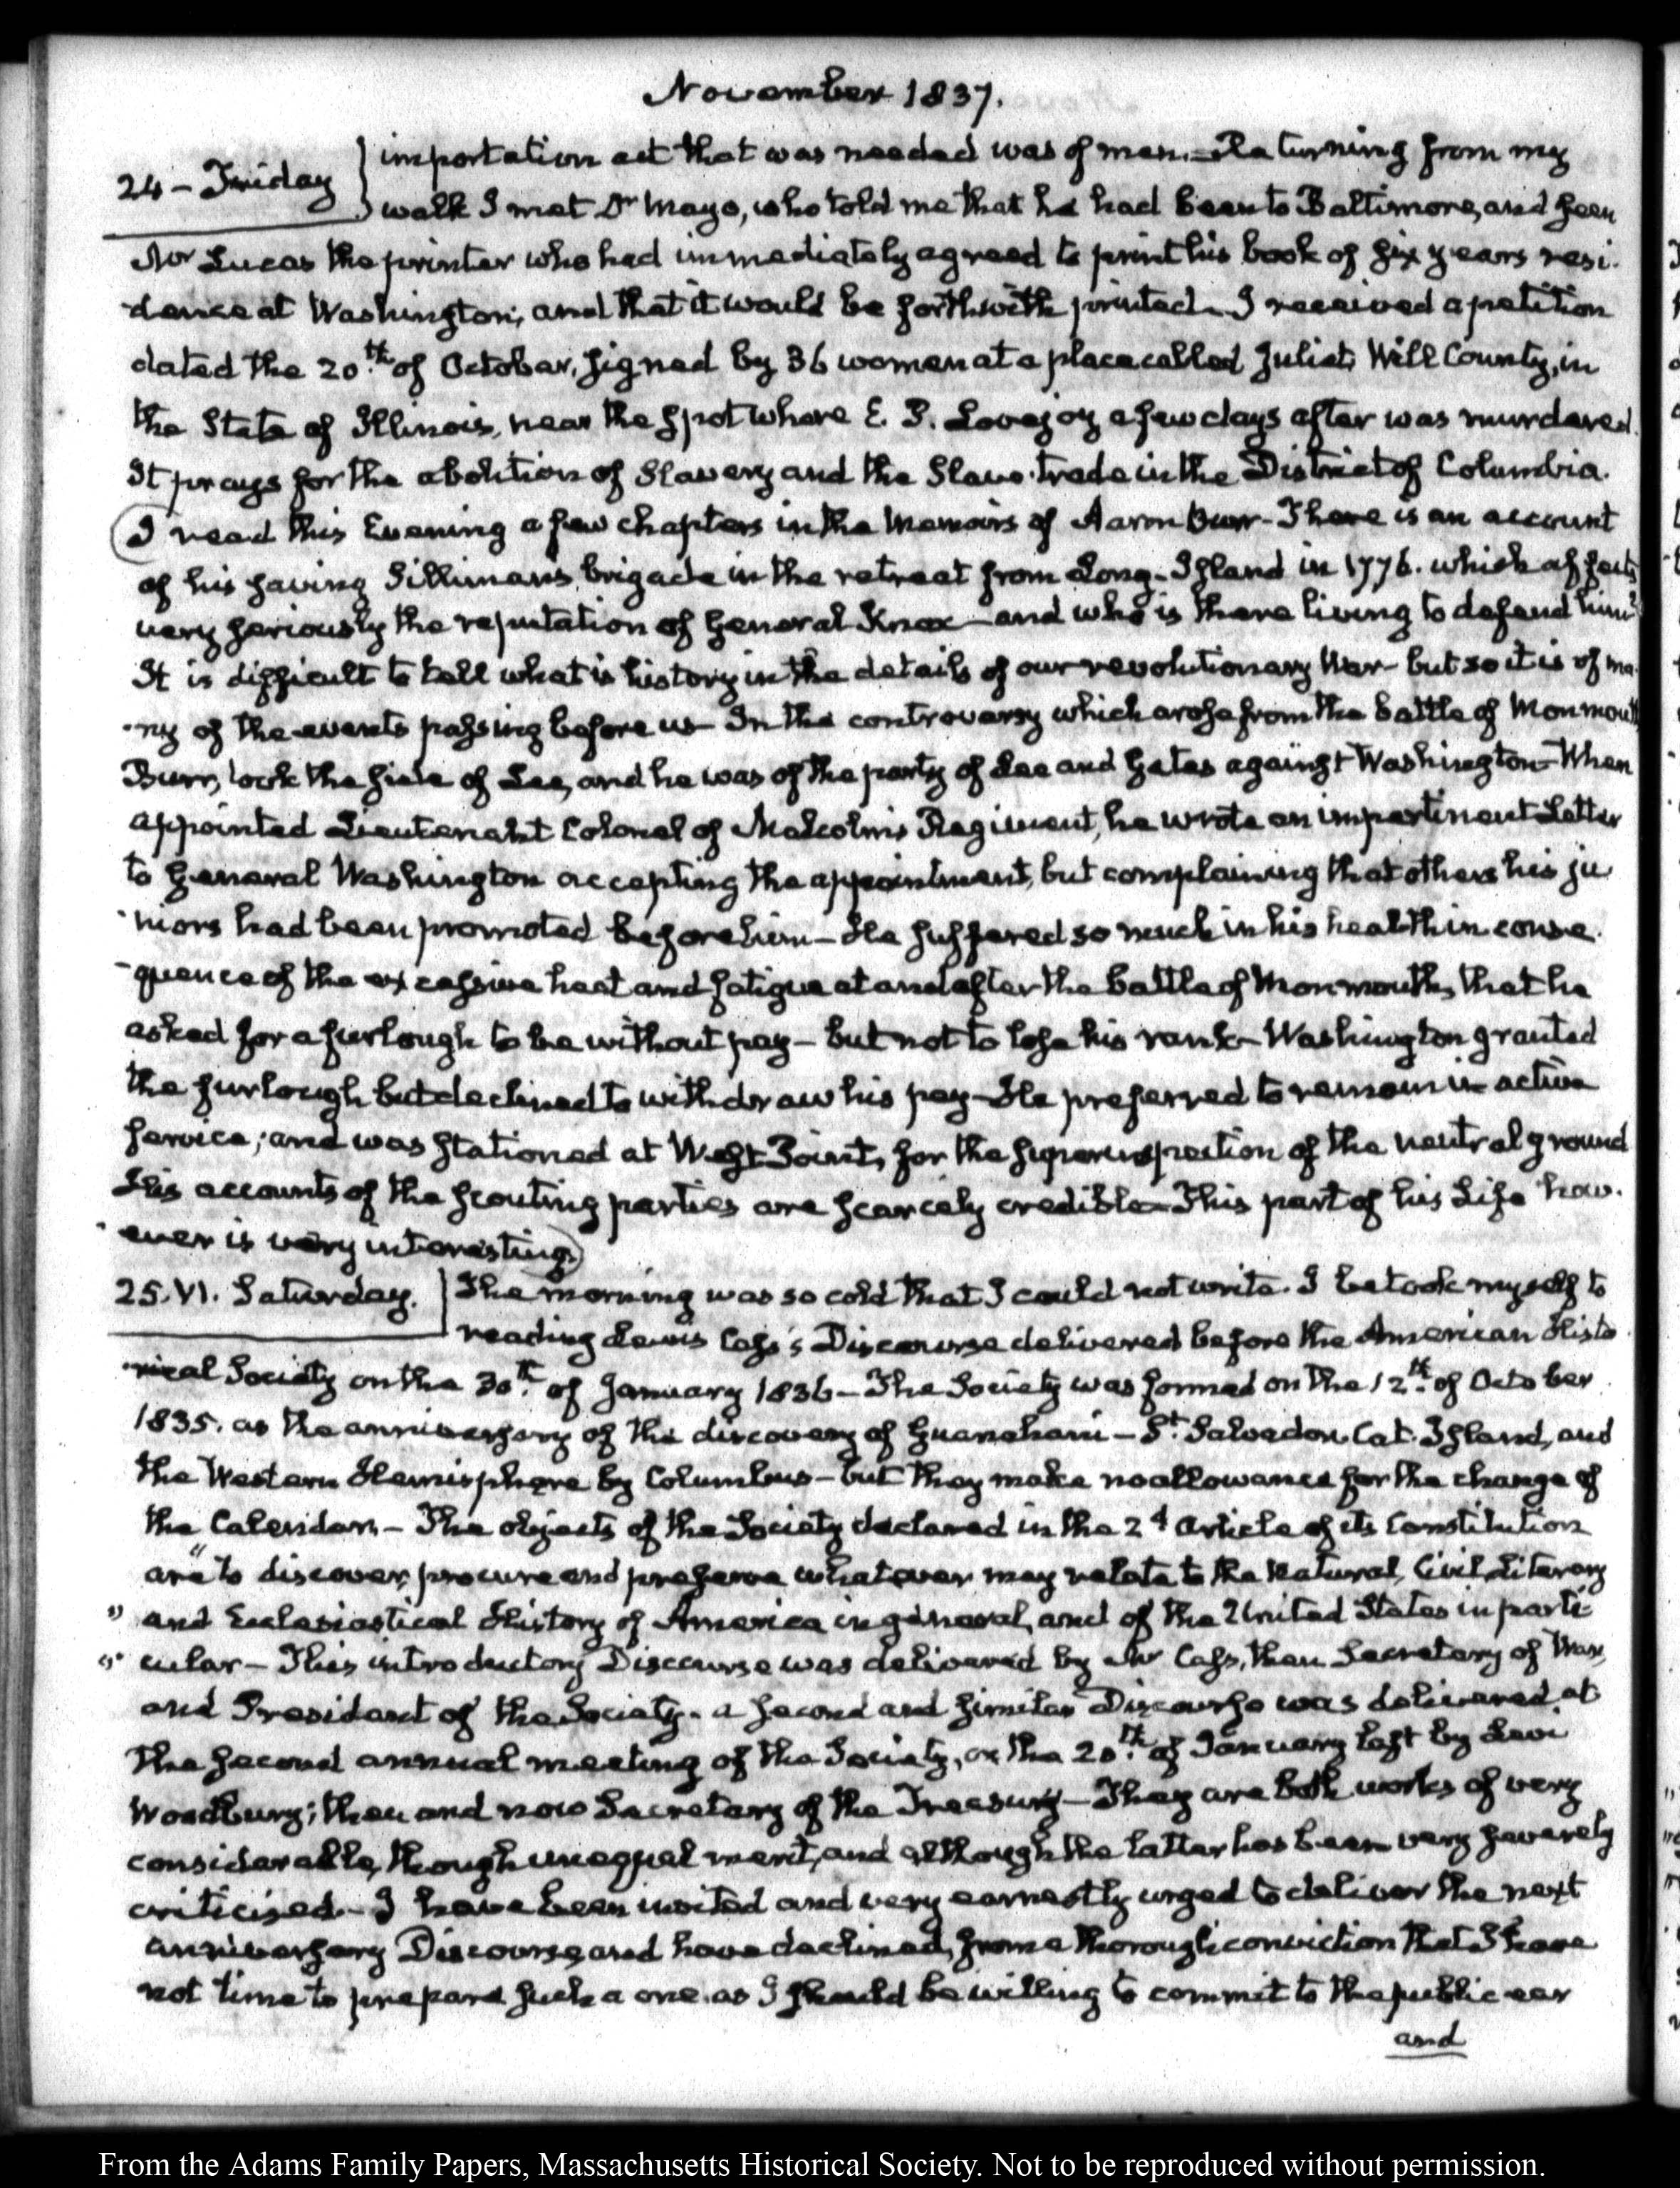 November 1837.
24 - Friday
importation act that was needed was of men. - Returning from my
walk I met Dr Mayo, who told me that he had been to Baltimore, and seen
Mr Lucas the printer who had immediately agreed to print his book of six years resi-
-dence at Washington; and that it would be forthwith printed. I received a petition
dated the 20th. of October, signed by 36 women at a place called Juliet, Will County, in
the State of Illinois, near the spot where E. P. Lovejoy a few days after was murdered.
It prays for the abolition of Slavery and the Slave-trade in the District of Columbia.
I read this Evening a few chapters in the Memoirs of Aaron Burr - There is an account
of his saving Silliman's brigade in the retreat from Long-Island in 1776. which affects
very seriously the reputation of General Knox - and who is there living to defend him?
It is difficult to tell what is history in the details of our revolutionary War - but so it is of ma-
-ny of the events passing before us - In the controversy which arose from the battle of Monmouth
Burr, took the side of Lee, and he was of the party of Lee and Gates against Washington - When
appointed Lieutenant Colonel of Malcolm's Regiment, he wrote an impertinent Letter
to General Washington accepting the appointment, but complaining that others his ju
-niors had been promoted before him - He suffered so much in his health in conse-
-quence of the excessive heat and fatigue at and after the battle of Monmouth, that he
asked for a furlough to be without pay - but not to lose his rank - Washington granted
the furlough but declined to withdraw his pay - He preferred to remain in active
service; and was stationed at West-Point, for the superinspection of the neutral ground
His accounts of the scouting parties are scarcely credible - This part of his Life how-
-ever is very interesting.
25. VI. Saturday.
The morning was so cold that I could not write. I betook myself to
reading Lewis Cass's Discourse delivered before the American Histo-
-rical Society on the 30th. of January 1836 - The Society was formed on the 12th. of October
1835. as the anniversary of the discovery of Guanahani - St. Salvador, Cat-Island, and
the Western Hemisphere by Columbus - but they make no allowance for the change of
the Calendar. - The objects of the Society declared in the 2d Article of its Constitution
are "to discover, procure and preserve whatever may relate to the Natural, Civil, Literary
" and Ecclesiastical History of America in general, and of the United States in parti-
"-cular - This introductory Discourse was delivered by Mr Cass, then Secretary of War,
and President of the Society. a second and similar Discourse was delivered at
the second annual meeting of the Society, on the 20th. of January last by Levi
Woodbury; then and now Secretary of the Treasury - They are both works of very
considerable, though unequal merit, and although the latter has been very severely
criticised - I have been invited and very earnestly urged to deliver the next
anniversary Discourse, and have declined, from a thorough conviction that I have
not time to prepare such a one as I should be willing to commit to the public ear
and
From the Adams Family Papers, Massachusetts Historical Society. Not to be reproduced without permission.